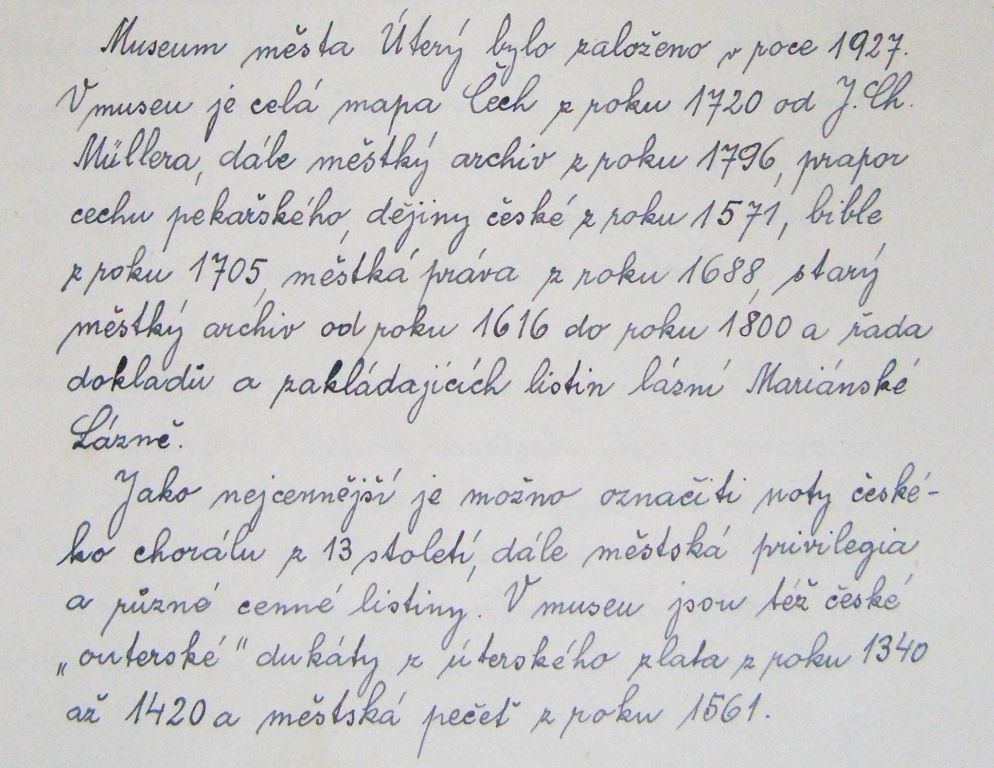 Museum města Úterý bylo založeno v roce 1927.
V museu je celá mapa Čech z roku 1720 od J. Ch.
Müllera, dále městký archiv z roku 1796, prapor
cechu pekařského, dějiny české z roku 1571, bible
z roku 1705, městká práva z roku 1688, starý
městký archiv od roku 1616 do roku 1800 a řada
dokladů a zakládajících listin lázní Mariánské
Lázně.
Jako nejcennější je možno označiti noty české-
ho chorálu z 13 století, dále městská privilegia
a různé cenné listiny. V museu jsou též české
„outerské" dukáty z úterského zlata z roku 1340
až 1420 a městská pečeť z roku 1561.